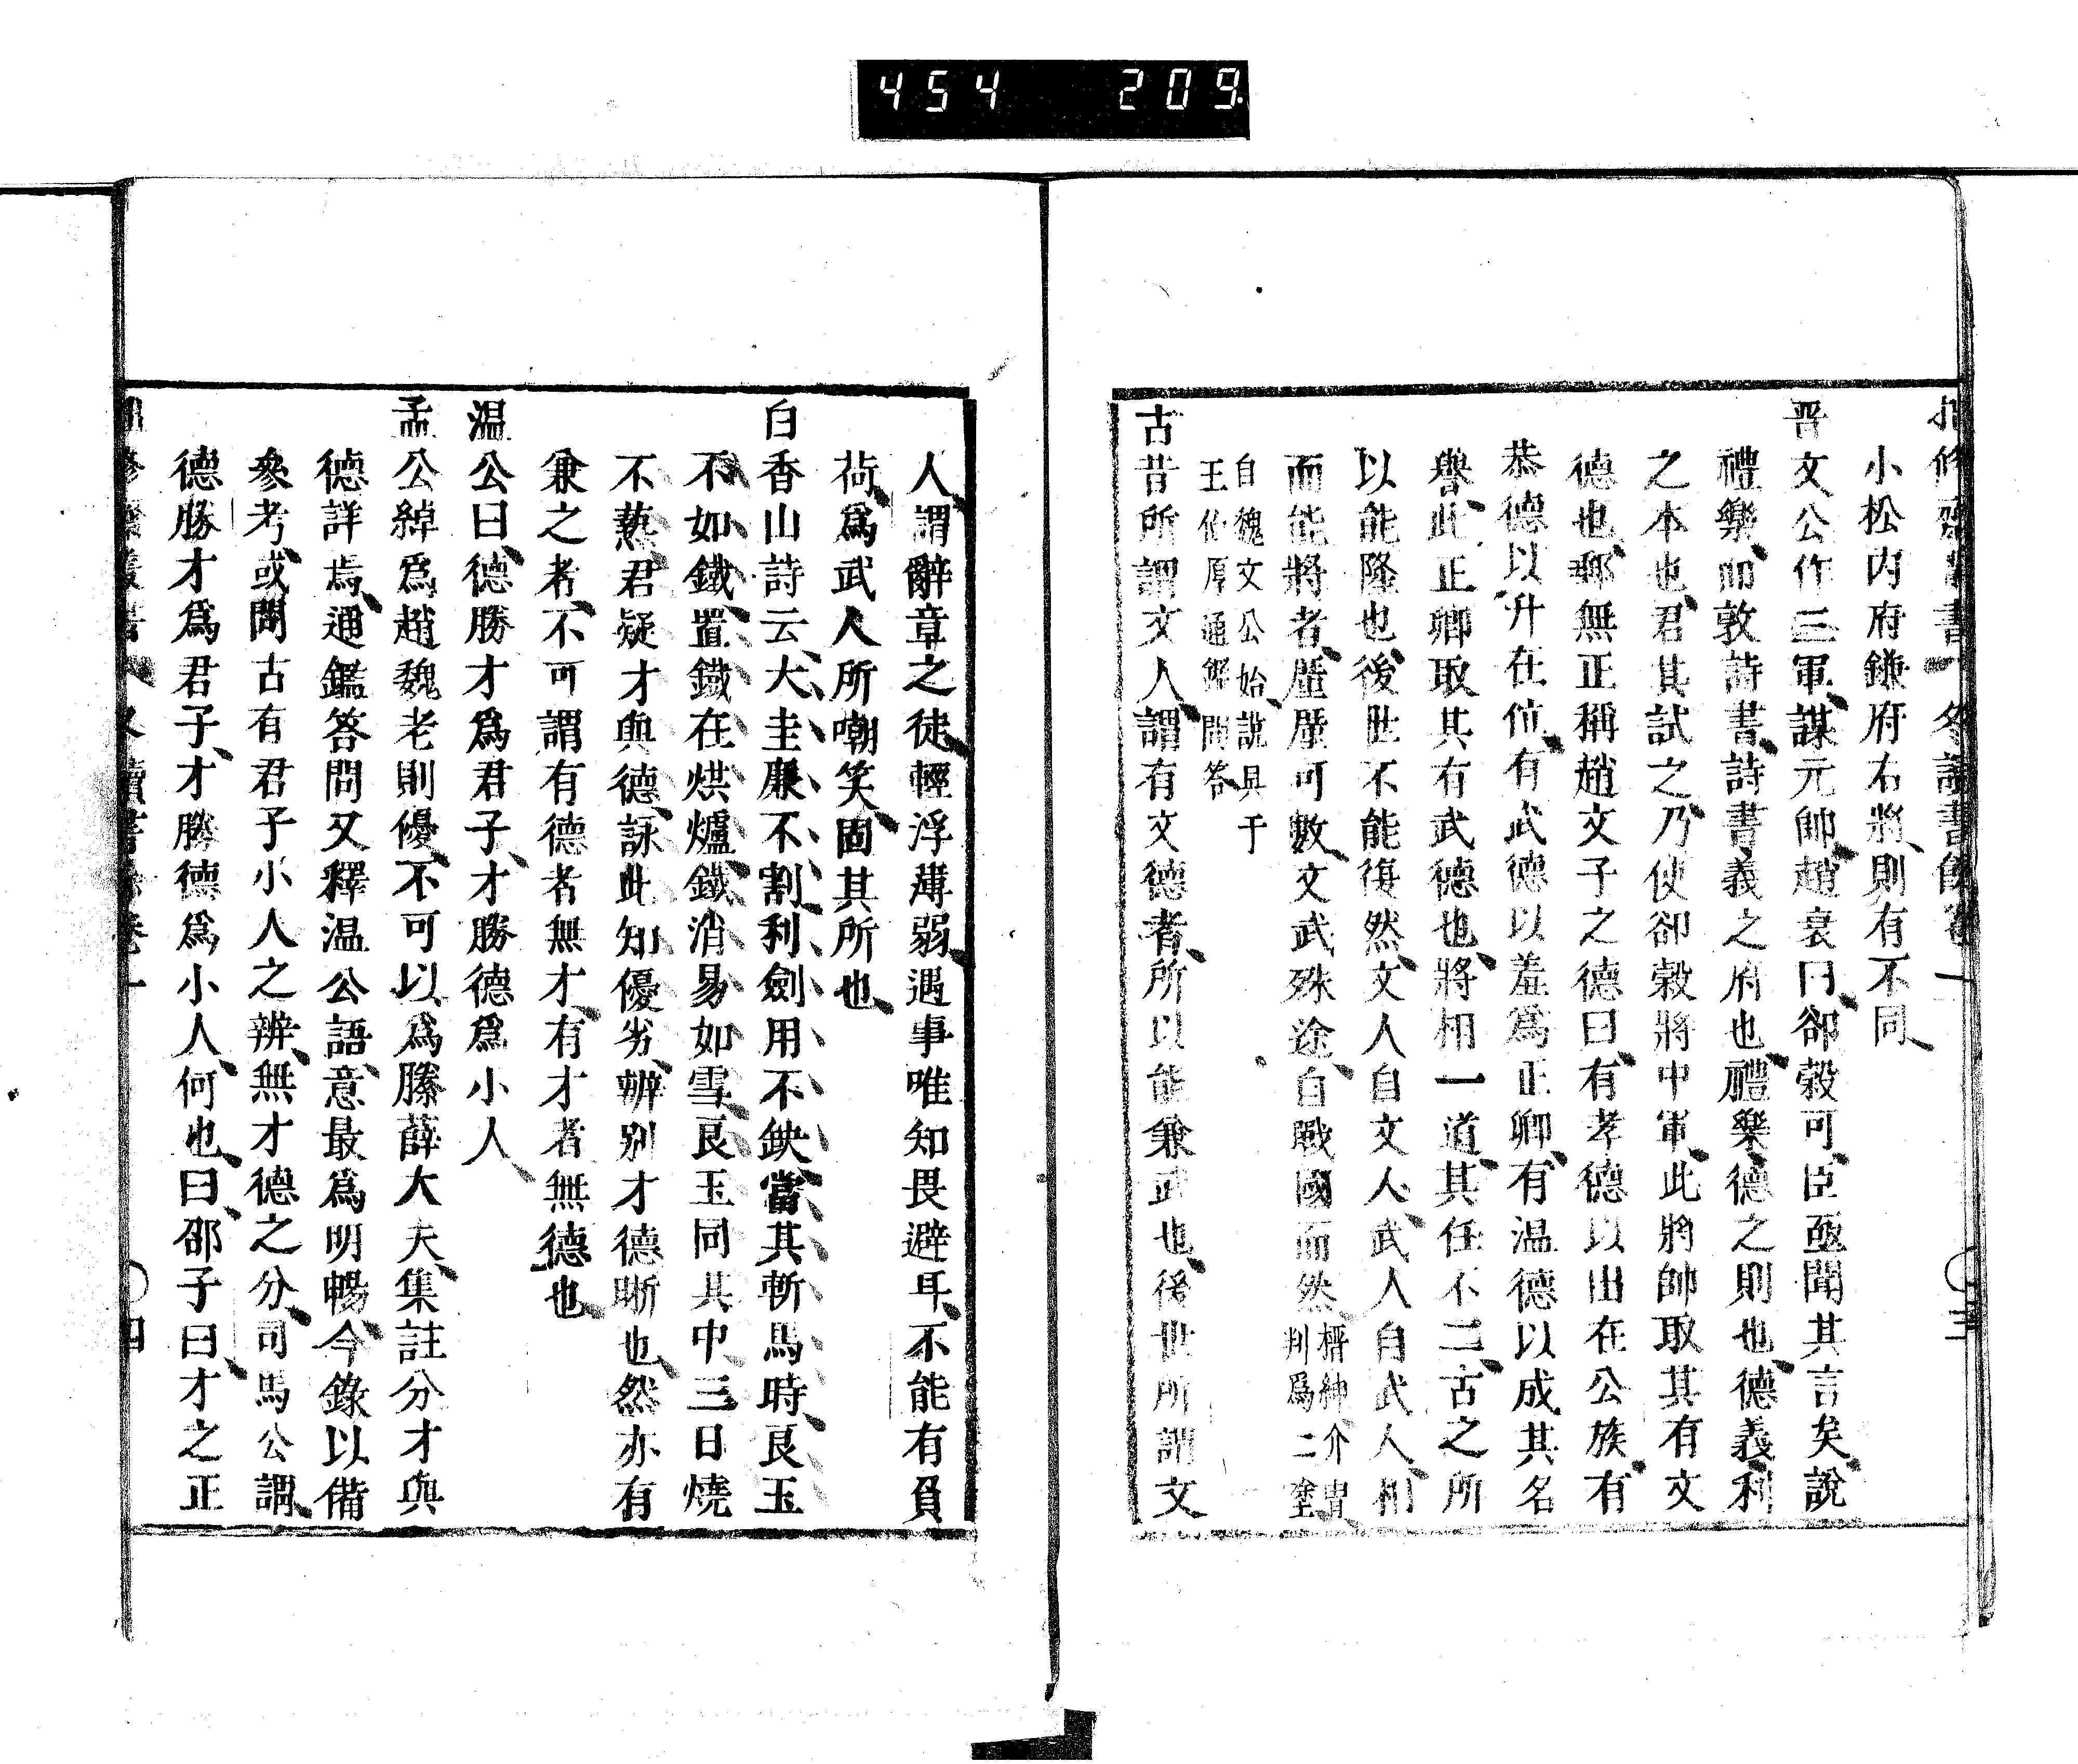 454 209
修 叢書 冬讀書餘卷一 三
小松内府鎌府右將則有不同
晋文公作三軍謀元帥趙衰曰郤縠可臣亟聞其言矣說
禮樂而敦詩書詩書義之府也禮樂德之則也德義利
之本也君其試之乃使郤縠將中軍此將帥取其有文
德也郵無正稱趙文子之德曰有孝德以出在公族有
恭德以升在位有武德以羞爲正卿有温德以成其名
譽此正卿取其有武德也將相一道其任不二古之所
以能隆也後世不能復然文人自文人武人自武人相
而能將者歴歴可數文武殊途自戰國而然搢紳介冑
判爲二塗
自魏文公始說具于
王伯厚通鄭問答
古昔所謂文人謂有文德者所以能兼武也後世所謂文
人謂辭章之徒輕浮薄弱遇事唯知畏避耳不能有負
荷爲武人所嘲笑固其所也
白香山詩云大圭廉不割利劍用不缺當其斬馬時良玉
不如鐵置鐵在烘爐鐵消易如雪良玉同其中三日燒
不熱君疑才與德詠此知優劣辨别才德晰也然亦有
兼之者不可謂有德者無才有才者無德也
温公曰德勝才爲君子才勝德爲小人
孟公綽爲趙魏老則優不可以爲滕薛大夫集註分才與
德詳焉通鑑答問又釋温公語意最爲明暢今錄以備
參考或問古有君子小人之辨無才德之分司馬公謂
德勝才爲君子才勝德爲小人何也曰邵子曰才之正
修 叢書 冬讀書餘卷一 四